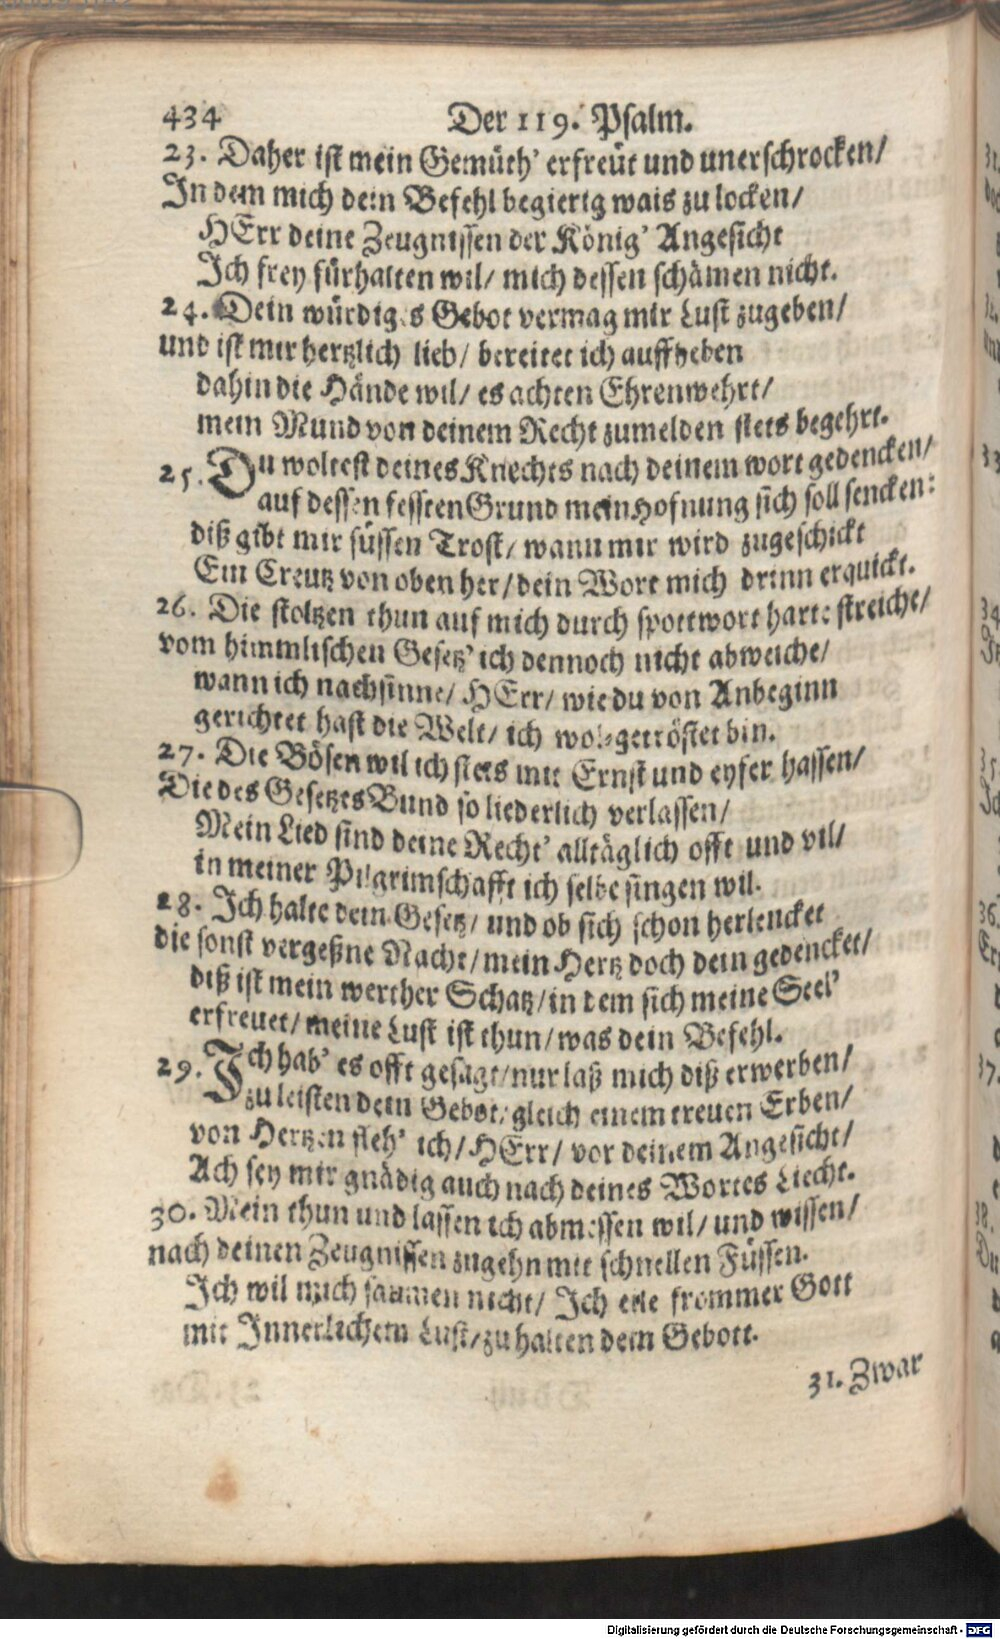 434 Der 119. Psalm.
23. Daher ist mein Gemüth’ erfreüt und unerschrocken/
In dem mich dein Befehl begierig wais zu locken/
HErr deine Zeugnissen der König’ Angesicht
Ich frey fürhalten wil/ mich dessen schämen nicht.
24. Dein würdiges Gebot vermag mir Lust zugeben/
und ist mir hertzlich lieb/ bereitet ich auffheben
dahin die Hände wil/ es achten Ehrenwehrt/
mein Mund von deinem Recht zumelden stets begehrt.
25. Du woltest deines Knechts nach deinem wort gedencken/
auf dessen fessten Grund mein Hofnung sich soll sencken:
diß gibt mir süssen Trost/ wann mir wird zugeschickt
Ein Creutz von oben her/ dein Wort mich drinn erquickt.
26. Die stoltzen thun auf mich durch spottwort harte streiche/
vom himmlischen Gesetz’ ich dennoch nicht abweiche/
wann ich nachsinne/ HErr/ wie du von Anbeginn
gerichtet hast die Welt/ ich wol getröstet bin.
27. Die Bösen wil ich stets mit Ernst und eyfer hassen/
Die des Gesetzes Bund so liederlich verlassen/
Mein Lied sind deine Recht’ alltäglich offt und vil/
in meiner Pilgrimschafft ich selbe singen wil.
28. Ich halte dein Gesetz/ und ob sich schon herlencket
die sonst vergeßne Nacht/ mein Hertz doch dein gedencket/
diß ist mein werther Schatz/ in dem sich meine Seel’
erfreuet/ meine Lust ist thun/ was dein Befehl.
29. Ich hab’ es offt gesagt/ nur laß mich diß erwerben/
zu leisten dein Gebot/ gleich einem treuen Erben/
von Hertzen fleh’ ich/ HErr/ vor deinem Angesicht/
Ach sey mir gnädig auch nach deines Wortes Liecht.
30. Mein thun und lassen ich abmessen wil/ und wissen/
nach deinen Zeugnissen zugehn mit schnellen Füssen.
Ich wil mich saumen nicht/ Ich eile frommer Gott
mit Innerlichem Lust/ zu halten dein Gebott.
31. Zwar
Digitalisierung gefördert durch die Deutsche Forschungsgemeinschaft - DFG